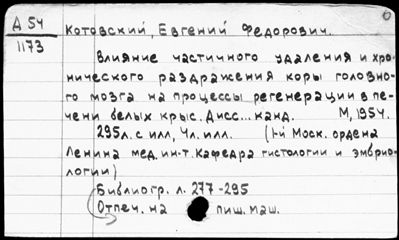 Д 54
1173
Котовский, Евгений Федорович.
Влияние частичного удаления и хро-
нического раздражения коры головно-
го мозга на процессы регенерации в пе-
чени белых крыс. Дисс... канд. М, 1954.
295л. с илл, 4л. илл. (1-й Моск. ордена
Ленина мед. ин-т. Кафедра гистологии и эмбрио-
логии)
Библиогр. л. 277-295
Отпеч. на пиш. маш.